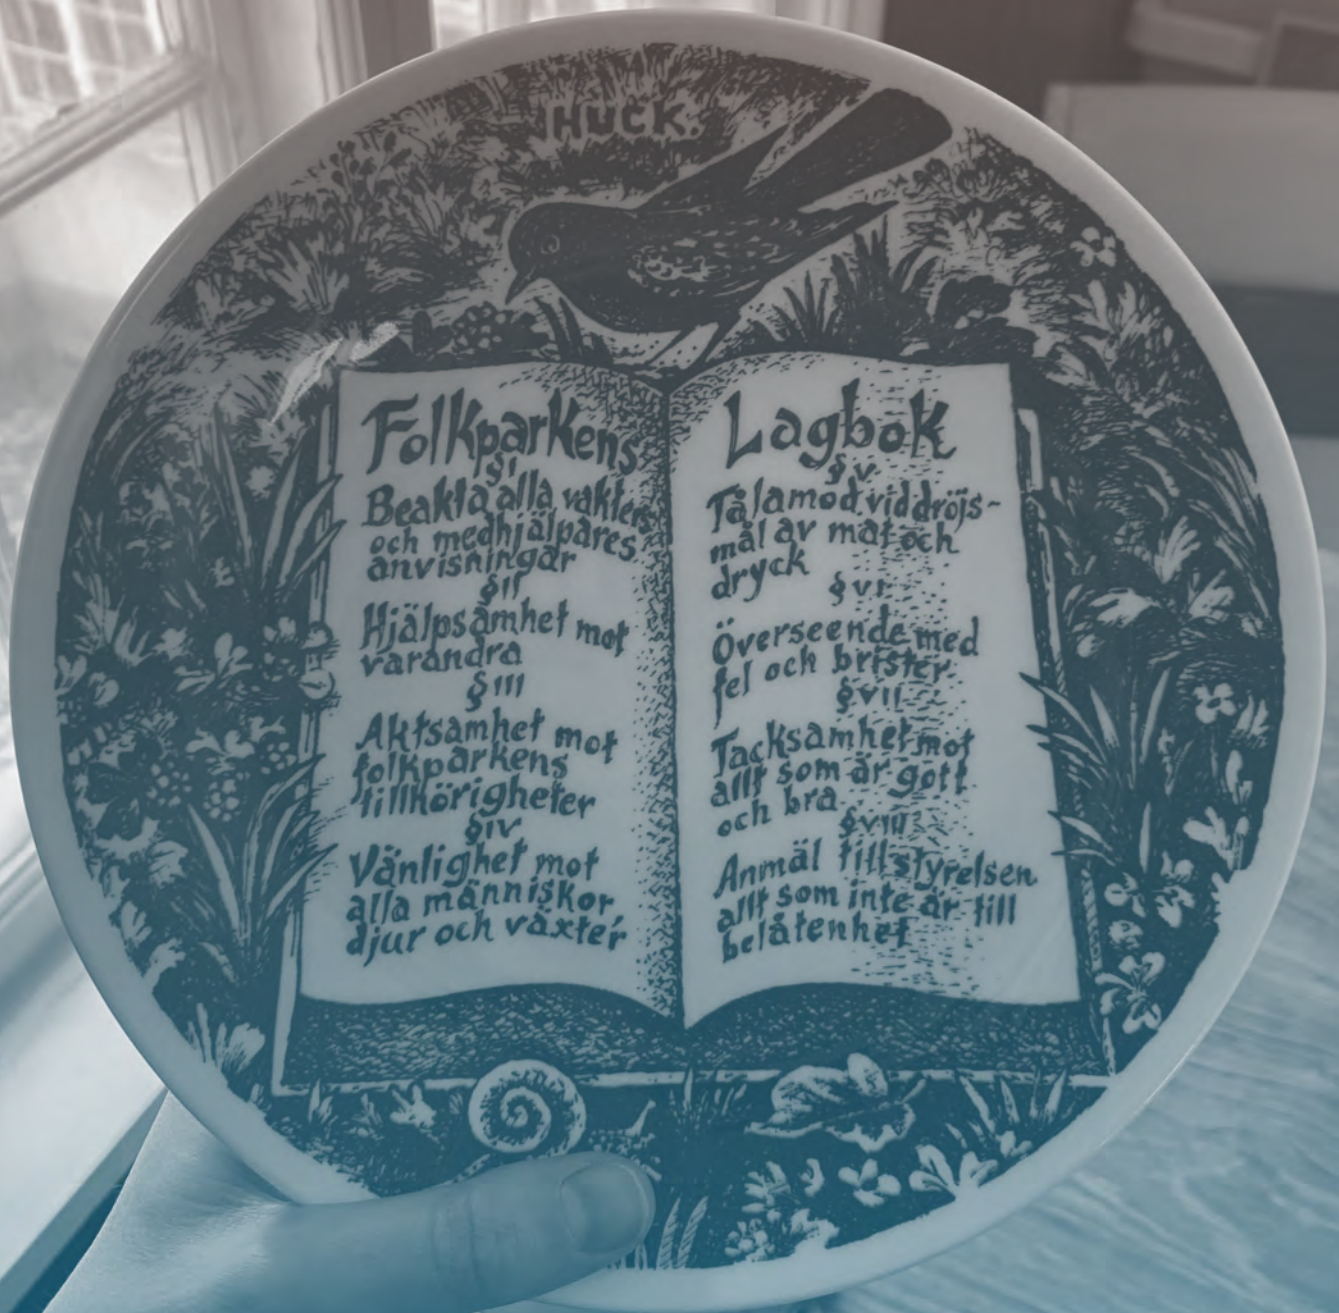 HUCK.
Folkparkens
§ I
Beakta alla vakters
och medhjälpares
anvisningar
§ II
Hjälpsamhet mot
varandra
§ III
Aktsamhet mot
folkparkens
tillhörigheter
§ IV
Vänlighet mot
alla människor,
djur och växter
Lagbok
§ V
Tålamod vid dröjs-
mål av mat och
dryck
§ VI
Överseende med
fel och brister
§ VII
Tacksamhet mot
allt som är gott
och bra
§ VIII
Anmäl till styrelsen
allt som inte är till
belåtenhet